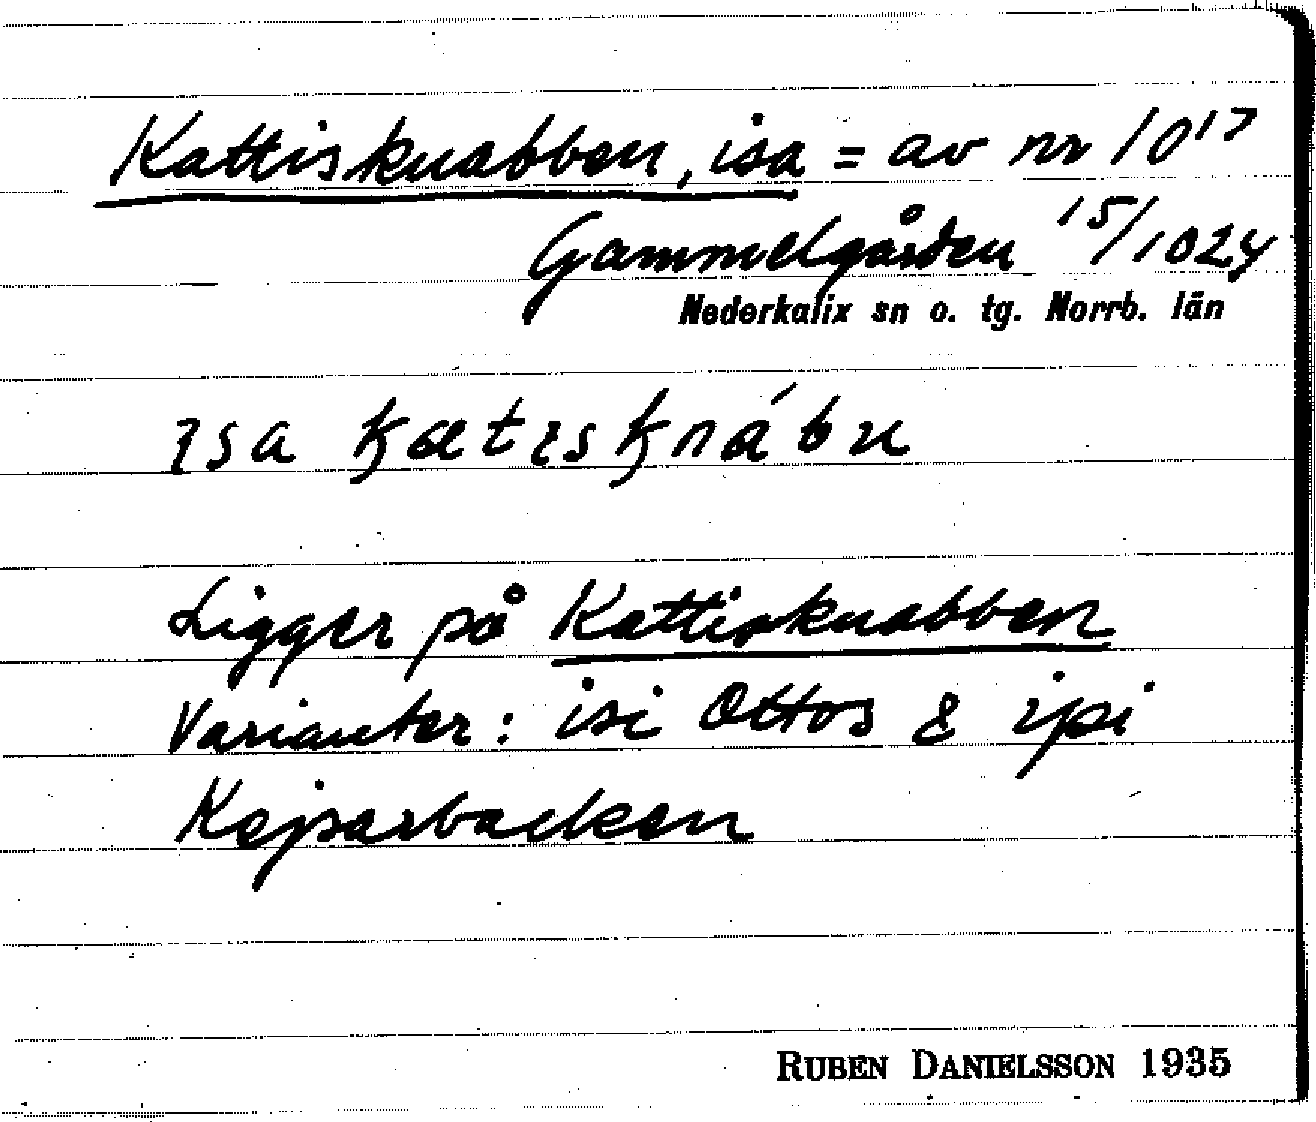 Kattisknabben, isa = av nr 10¹⁷
Gammelgården ¹⁵/1024
Nederkalix sn o. tg. Norrb. län
ɪsa kætɪsknábn
Ligger på Kattisknabben
Varianter: isi Ottos & ipi
Kejsarbacken
RUBEN DANIELSSON 1935